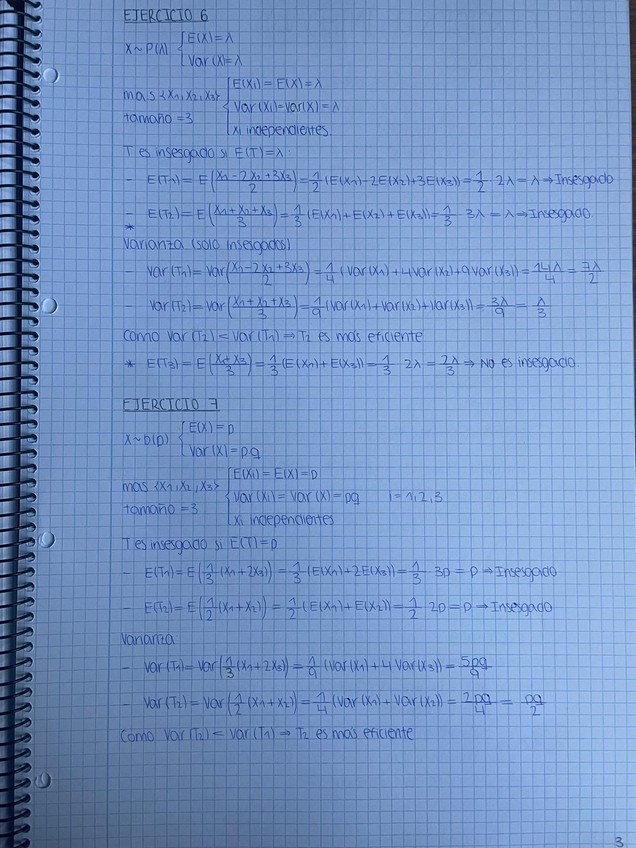 EJERCICIO 6
X~P(λ) { E(X)=λ
Var(X)=λ
mas {X1, X2, X3} { E(Xi)=E(X)=λ
tamaño=3 Var(Xi)=Var(X)=λ
xi independientes
T es insesgado si E(T)=λ
- E(T1)=E((X1-2X2+3X3)/2)=1/2 (E(X1)-2E(X2)+3E(X3))=1/2 · 2λ=λ ⇒ Insesgado
- E(T2)=E((X1+X2+X3)/3)=1/3 (E(X1)+E(X2)+E(X3))=1/3 · 3λ=λ ⇒ Insesgado
*
Varianza (solo insesgados)
- Var(T1)=Var((X1-2X2+3X3)/2)=1/4 (Var(X1)+4Var(X2)+9Var(X3))=14λ/4=7λ/2
- Var(T2)=Var((X1+X2+X3)/3)=1/9 (Var(X1)+Var(X2)+Var(X3))=3λ/9=λ/3
Como Var(T2)<Var(T1) ⇒ T2 es más eficiente
* E(T3)=E((X1+X3)/3)=1/3 (E(X1)+E(X3))=1/3 · 2λ=2λ/3 ⇒ No es insesgado
EJERCICIO 7
X~b(p) { E(X)=p
Var(X)=pq
mas {X1, X2, X3} { E(Xi)=E(X)=p
tamaño=3 Var(Xi)=Var(X)=pq i=1,2,3
xi independientes
T es insesgado si E(T)=p
- E(T1)=E(1/3 (X1+2X3))=1/3 (E(X1)+2E(X3))=1/3 · 3p=p ⇒ Insesgado
- E(T2)=E(1/2 (X1+X2))=1/2 (E(X1)+E(X2))=1/2 · 2p=p ⇒ Insesgado
Varianza
- Var(T1)=Var(1/3 (X1+2X3))=1/9 (Var(X1)+4Var(X3))=5pq/9
- Var(T2)=Var(1/2 (X1+X2))=1/4 (Var(X1)+Var(X2))=2pq/4=pq/2
Como Var(T2)<Var(T1) ⇒ T2 es más eficiente
3